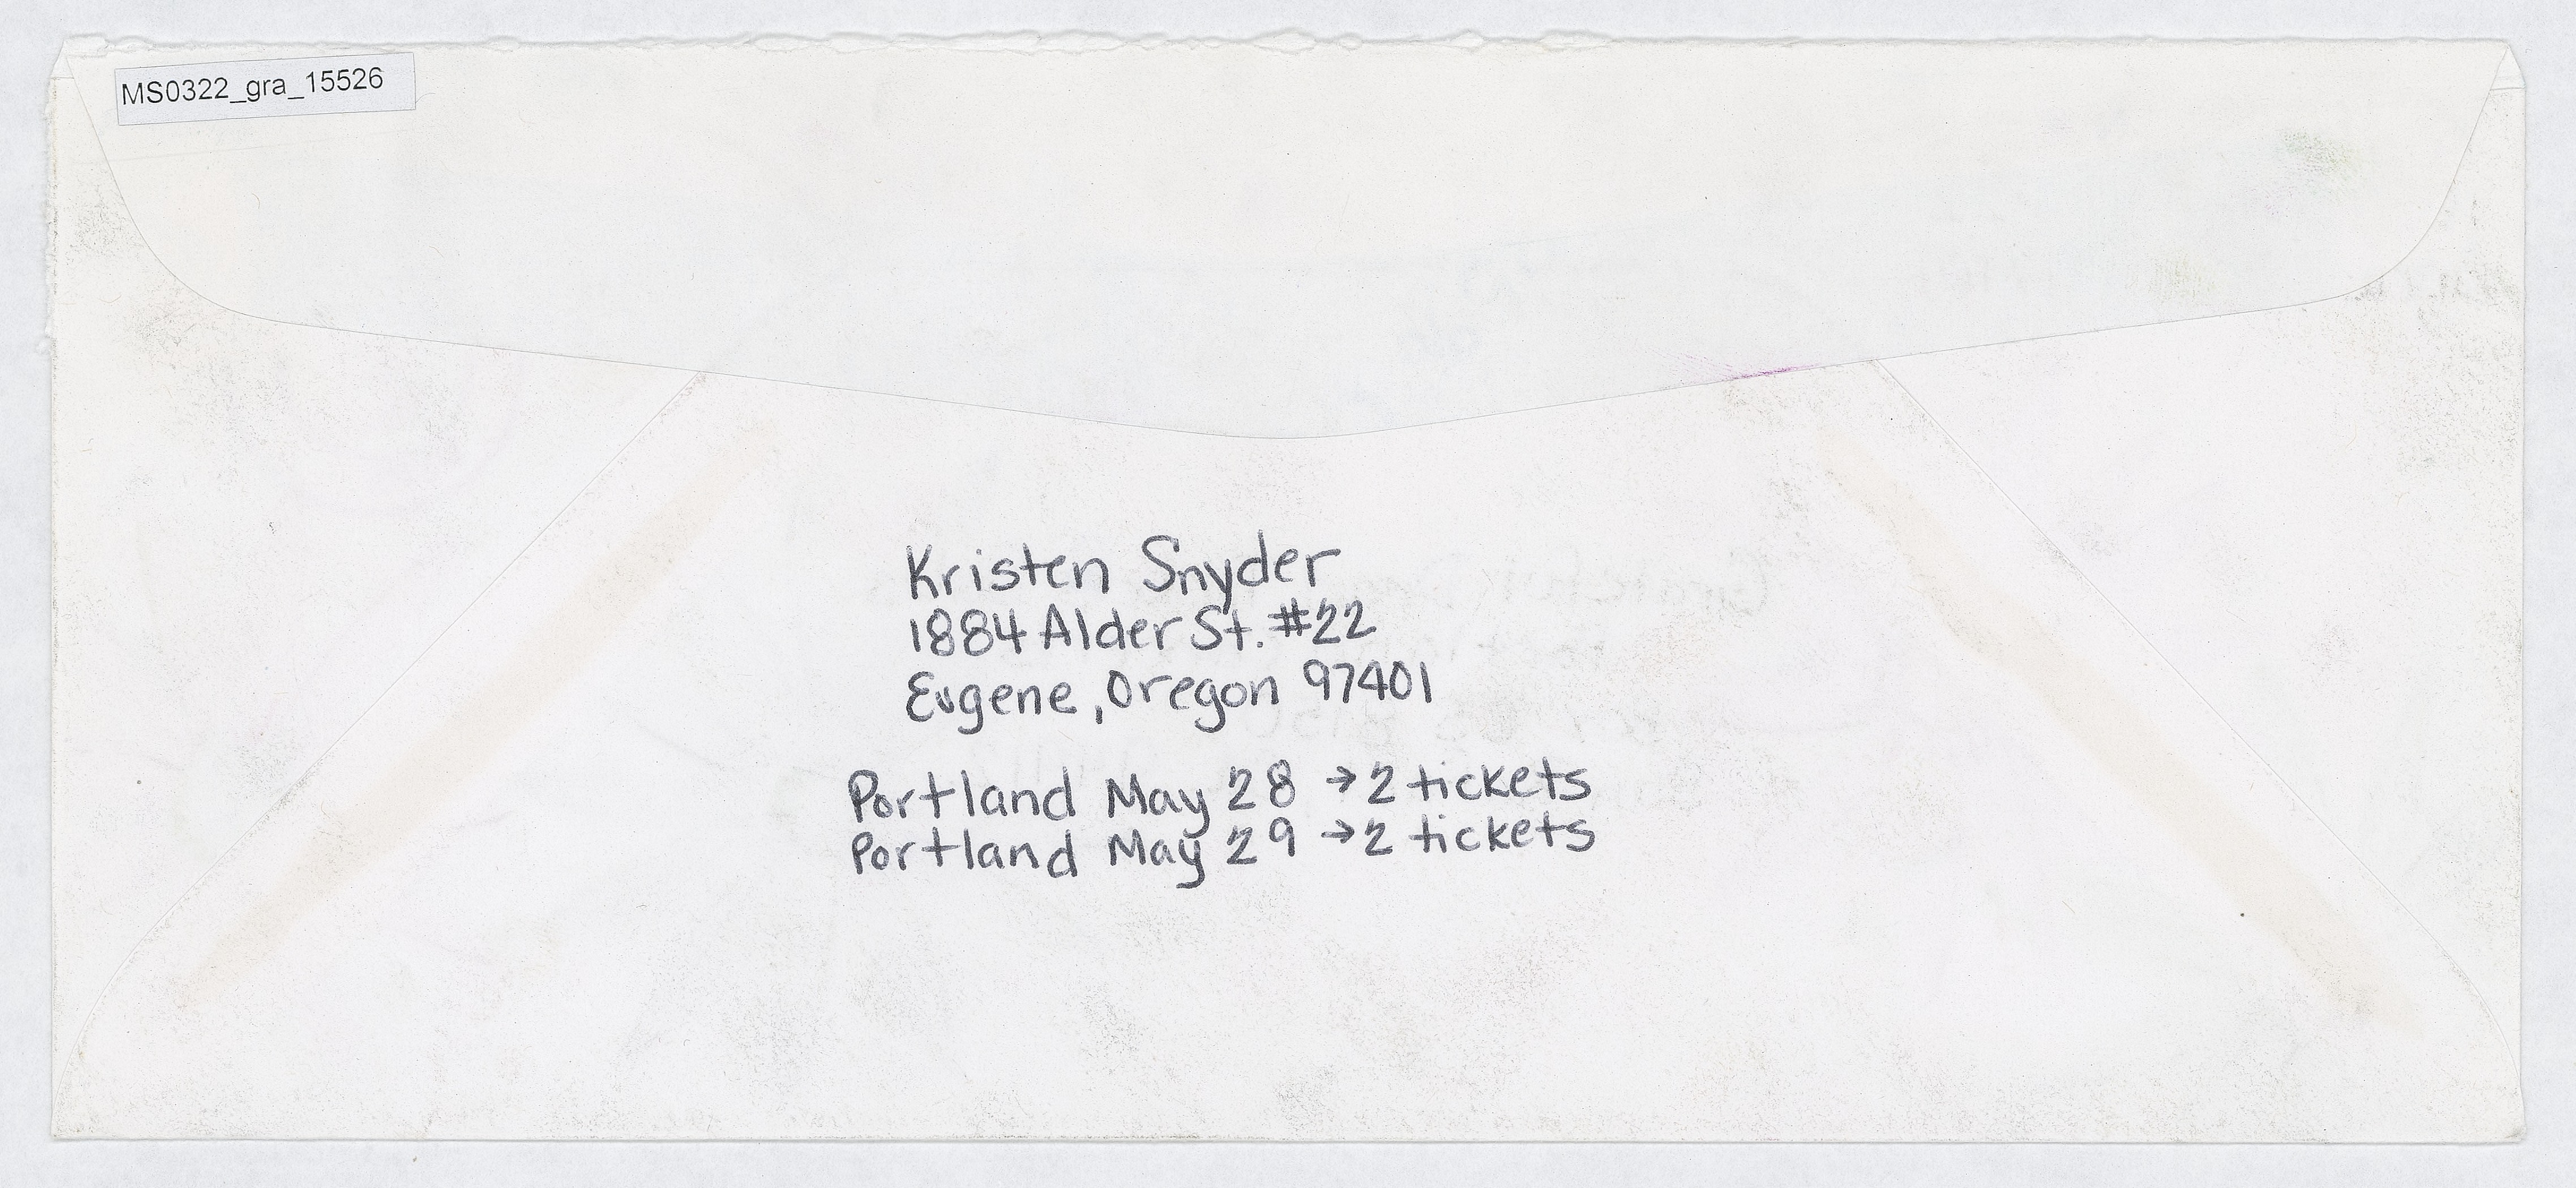 MS0322_gra_15526
Kristen Snyder
1884 Alder St. #22
Eugene, Oregon 97401
Portland May 28 → 2 tickets
Portland May 29 → 2 tickets